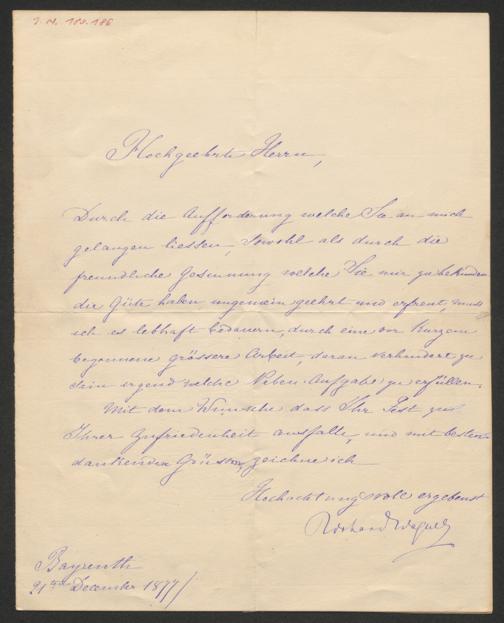 I. N. 100.186
Hochgeehrte Herrn,
Durch die Aufforderung welche Sie an mich
gelangen liessen, sowohl als durch die
freundliche Gesinnung welche Sie mir zu bekunden
die Güte haben ungemein geehrt und erfreut, muss
ich es lebhaft bedauern, durch eine vor Kurzem
begonnene grössere Arbeit, daran verhindert zu
sein irgend welche Neben-Aufgabe zu erfüllen.
Mit dem Wunsche dass Ihr Fest zu
Ihrer Zufriedenheit ausfalle, und mit besten
dankenden Grüssen, zeichne ich
Hochachtungsvoll ergebenst
Richard Wagner
Bayreuth
21 December 1877/